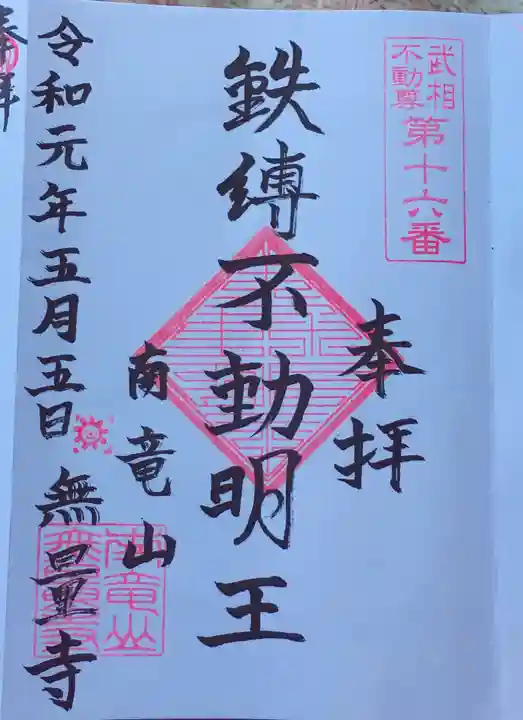 武相
不動尊
第十六番
奉拝
鉄縛不動明王
南竜山
無量寺
令和元年五月五日
南竜山
無量寺
奉拝